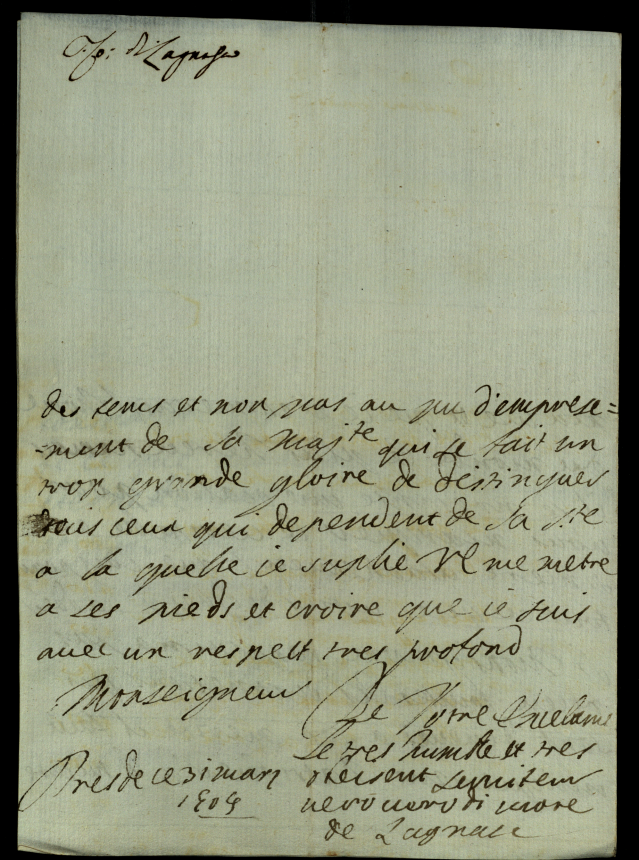 di Lagnasco
des tems et non pas au peu d'emprese=
=ment de sa maj^te qui se fait un
trop grande gloire de distingues
tous ceux qui dependent de sa s^te
a la quelle ie suplie VE me metre
a ses pieds et croire que ie suis
avec un respect tres profond
Monseigneur
De Votre Excelance
Le tres humble et tres
obeisent serviteur
de Lagnasc
Dresde ce 31 mars